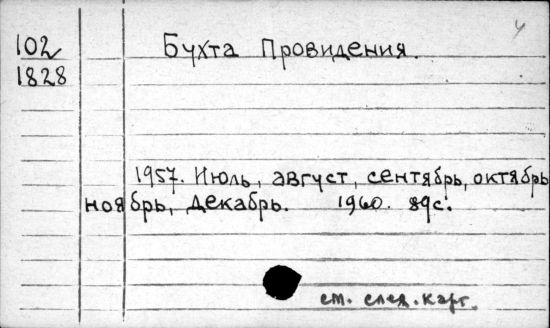 102
1828
Бухта Провидения.
1957. Июль, август, сентябрь, октябрь
ноябрь, декабрь. 1960. 89с.
см. след. карт.